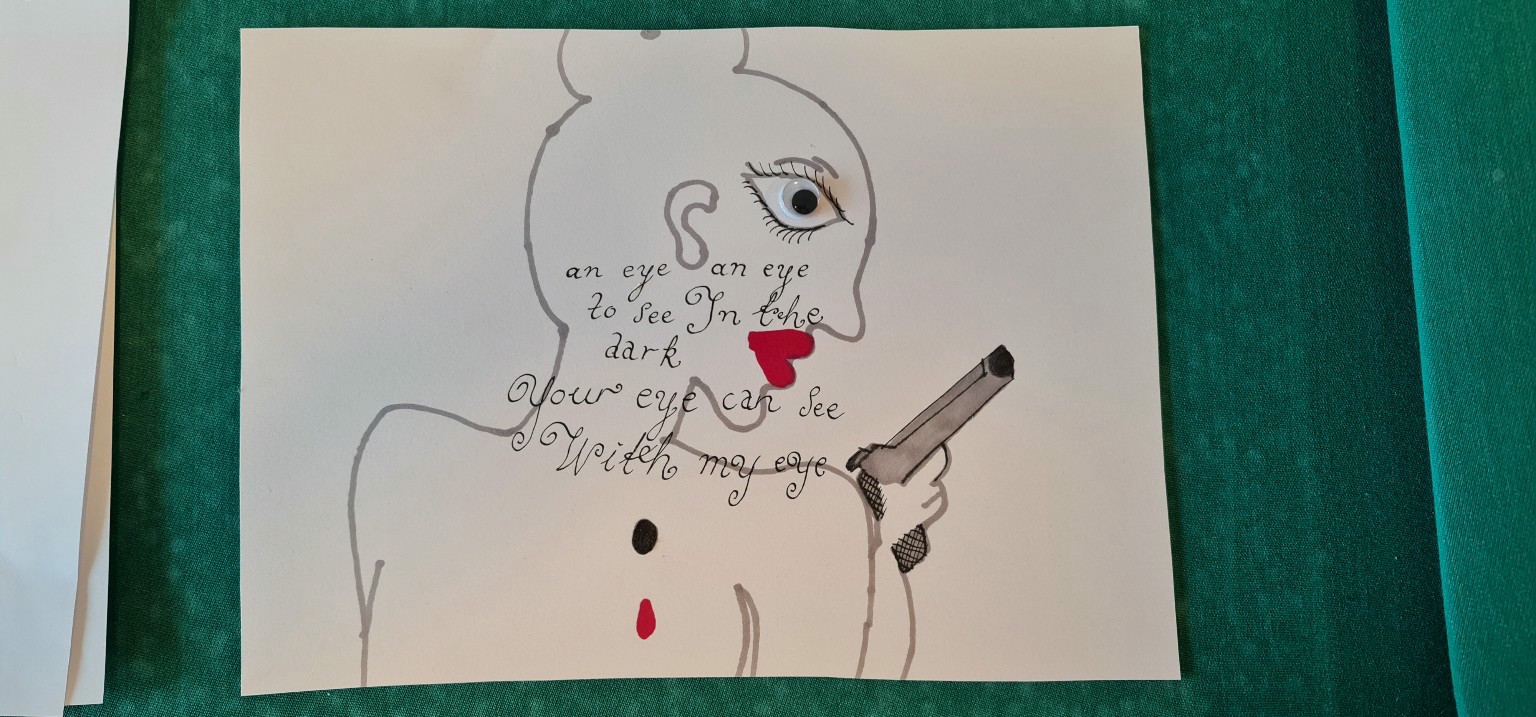 an eye an eye
to see In the
dark
Your eye can see
With my eye